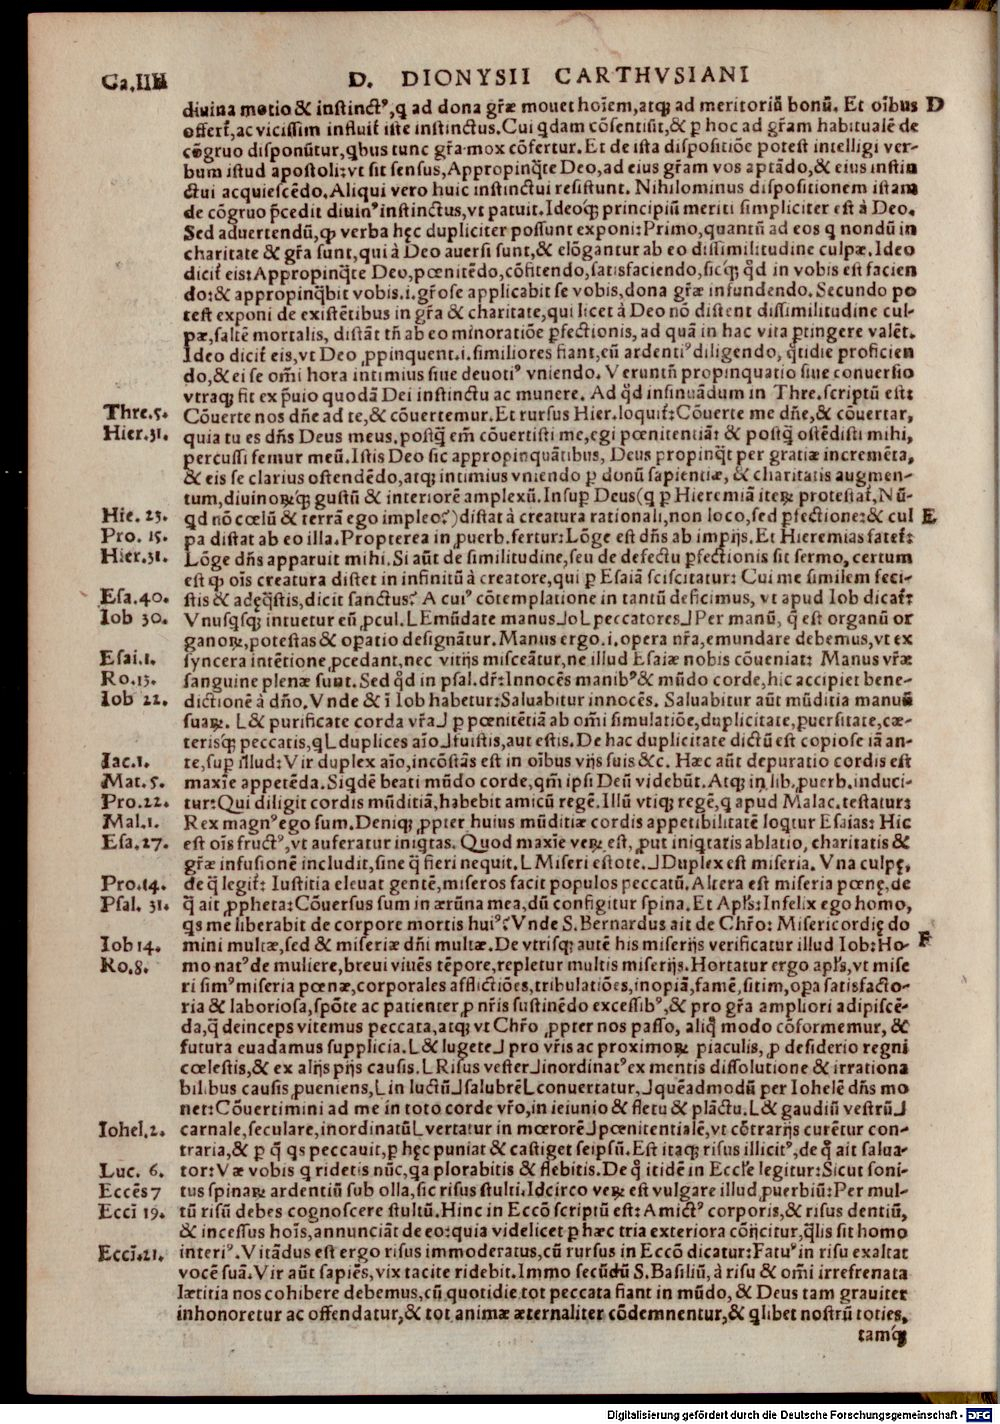 Ca.IIII D. DIONYSII CARTHVSIANI
diuina motio & instinctꝰ,q̃ ad dona gr̃æ mouet hoĩem,atq; ad meritoriũ bonũ. Et oĩbus D
offert̃,ac vicissim influit̃ iste instinctus.Cui qdam cõsentiũt,& ꝑ hoc ad gr̃am habitualẽ de
cõgruo disponũtur,qbus tunc gr̃a mox cõfertur.Et de ista dispositiõe potest intelligi ver-
bum istud apostoli:vt sit sensus,Appropinq̃te Deo,ad eius gr̃am vos aptãdo,& eius instin
ctui acquiescẽdo.Aliqui vero huic instinctui resistunt. Nihilominus dispositionem istam
de cõgruo p̃cedit diuinꝰ instinctus,vt patuit.Ideoq; principiũ meriti simpliciter est à Deo.
Sed aduertendũ,ꝙ verba hęc dupliciter possunt exponi:Primo,quantũ ad eos q nondũ in
charitate & gr̃a sunt,qui à Deo auersi sunt,& elõgantur ab eo dissimilitudine culpæ. Ideo
dicit̃ eis:Appropinq̃te Deo,pœnitẽdo,cõfitendo,satisfaciendo,sicq; qd̃ in vobis est facien
do:& appropinq̃bit vobis.i.gr̃ose applicabit se vobis,dona gr̃æ infundendo. Secundo po
test exponi de existẽtibus in gr̃a & charitate,qui licet à Deo nõ distent dissimilitudine cul-
pæ,saltẽ mortalis, distãt tñ ab eo minoratiõe ꝑfectionis, ad quã in hac vita ꝑtingere valẽt.
Ideo dicit̃ eis,vt Deo ꝓpinquent.i.similiores fiant,cũ ardentiꝰ diligendo, q̃tidie proficien
do,& ei se om̃i hora intimius siue deuotiꝰ vniendo. Veruntñ propinquatio siue conuersio
vtraq; fit ex p̃uio quodã Dei instinctu ac munere. Ad qd̃ insinuãdum in Thre.scriptũ est:
Thre.5. Cõuerte nos dñe ad te,& cõuertemur.Et rursus Hier.loquit̃:Cõuerte me dñe,& cõuertar,
Hier.31. quia tu es dñs Deus meus,postq̃ em̃ cõuertisti me,egi pœnitentiã: & postq̃ ostẽdisti mihi,
percussi femur meũ.Istis Deo sic appropinquãtibus, Deus propinq̃t per gratiæ incremẽta,
& eis se clarius ostendẽdo,atq; intimius vniendo ꝑ donũ sapientiæ, & charitatis augmen-
tum,diuinoꝝq; gustũ & interiorẽ amplexũ.Insuꝑ Deus(q ꝑ Hieremiã iteꝝ protestat̃,Nũ-
Hie. 23. qd nõ cœlũ & terrã ego impleo?)distat à creatura rationali,non loco,sed ꝑfectione:& cul E
Pro. 15. pa distat ab eo illa.Propterea in ꝓuerb.fertur:Lõge est dñs ab impijs.Et Hieremias fatet̃:
Hier.31. Lõge dñs apparuit mihi.Si aũt de similitudine,seu de defectu ꝑfectionis sit sermo, certum
est ꝙ oĩs creatura distet in infinitũ à creatore,qui ꝑ Esaiã sciscitatur: Cui me similem feci-
Esa.40. stis & adęq̃stis,dicit sanctus? A cuiꝰ cõtemplatione in tantũ deficimus, vt apud Iob dicat̃:
Iob 30. Vnusqsq; intuetur eũ ꝓcul.⌊Emũdate manus⌋o⌊peccatores⌋Per manũ, q̃ est organũ or
ganoꝝ,potestas & oꝑatio designãtur. Manus ergo.i.opera nr̃a,emundare debemus,vt ex
Esai.1. syncera intẽtione ꝓcedant,nec vitijs misceãtur,ne illud Esaiæ nobis cõueniat: Manus vr̃æ
Ro.13. sanguine plenæ sunt. Sed qd̃ in psal.dr̃:Innocẽs manibꝰ & mũdo corde,hic accipiet bene-
Iob 22. dictionẽ à dño. Vnde & ĩ Iob habetur:Saluabitur innocẽs. Saluabitur aũt mũditia manuũ
suaꝝ. ⌊& purificate corda vr̃a⌋ ꝑ pœnitẽtiã ab om̃i simulatiõe,duplicitate,ꝑuersitate,cæ-
terisq; peccatis,q⌊duplices aĩo⌋fuistis,aut estis.De hac duplicitate dictũ est copiose iã an-
Iac.1. te,suꝑ illud:Vir duplex aĩo,incõstãs est in oĩbus vijs suis &c. Hæc aũt depuratio cordis est
Mat.5. maxĩe appetẽda. Siqdẽ beati mũdo corde,qm̃ ipsi Deũ videbũt. Atq; in lib.ꝓuerb.induci-
Pro.22. tur:Qui diligit cordis mũditiã,habebit amicũ regẽ.Illũ vtiq; regẽ,q apud Malac.testatur:
Mal.1. Rex magnꝰ ego sum.Deniq; ꝓpter huius mũditiæ cordis appetibilitatẽ loqtur Esaias: Hic
Esa.27. est oĩs fructꝰ,vt auferatur iniqtas. Quod maxĩe veꝝ est, put iniqtatis ablatio, charitatis &
gr̃æ infusionẽ includit,sine q̃ fieri nequit.⌊Miseri estote.⌋Duplex est miseria. Vna culpę,
Pro.14. de q̃ legit̃: Iustitia eleuat gentẽ,miseros facit populos peccatũ. Altera est miseria pœnę,de
Psal. 31. q̃ ait ꝓpheta:Cõuersus sum in ærũna mea,dũ configitur spina.Et Apl̃s:Infelix ego homo,
qs me liberabit de corpore mortis huiꝰ? Vnde S.Bernardus ait de Chr̃o: Misericordię do
Iob 14. mini multæ,sed & miseriæ dñi multæ.De vtrisq; autẽ his miserijs verificatur illud Iob:Ho- F
Ro.8. mo natꝰ de muliere,breui viuẽs tẽpore,repletur multis miserijs.Hortatur ergo apl̃s,vt mise
ri simꝰ miseria pœnæ,corporales afflictiões,tribulatiões,inopiã,famẽ,sitim,oꝑa satisfacto-
ria & laboriosa,spõte ac patienter ꝓ nr̃is sustinẽdo excessibꝰ,& pro gr̃a ampliori adipiscẽ-
da,q̃ deinceps vitemus peccata,atq; vt Chr̃o ꝓpter nos passo, aliq̃ modo cõformemur, &
futura euadamus supplicia.⌊& lugete⌋ pro vr̃is ac proximoꝝ piaculis, ꝓ desiderio regni
cœlestis,& ex alijs pijs causis.⌊Risus vester⌋inordinatꝰ ex mentis dissolutione & irrationa
bilibus causis ꝓueniens,⌊in luctũ⌋salubrẽ⌊conuertatur,⌋quẽadmodũ per Iohelẽ dñs mo
net:Cõuertimini ad me in toto corde vr̃o,in ieiunio & fletu & plãctu.⌊& gaudiũ vestrũ⌋
Iohel.2. carnale,seculare,inordinatũ⌊vertatur in mœrorẽ⌋pœnitentialẽ,vt cõtrarijs curẽtur con-
traria,& ꝑ q̃ qs peccauit,ꝑ hęc puniat & castiget seipsũ.Est itaq; risus illicitꝰ,de q̃ ait salua-
Luc. 6. tor:Væ vobis q ridetis nũc,qa plorabitis & flebitis.De q̃ itidẽ in Eccl̃e legitur:Sicut soni-
Eccẽs 7 tus spinaꝝ ardentiũ sub olla,sic risus stulti.Idcirco veꝝ est vulgare illud ꝓuerbiũ:Per mul-
Eccĩ 19. tũ risũ debes cognoscere stultũ.Hinc in Eccõ scriptũ est: Amictꝰ corporis,& risus dentiũ,
& incessus hoĩs,annunciãt de eo:quia videlicet ꝑ hæc tria exteriora cõijcitur,q̃lis sit homo
Eccĩ.21. interiꝰ.Vitãdus est ergo risus immoderatus,cũ rursus in Eccõ dicatur:Fatuꝰ in risu exaltat
vocẽ suã.Vir aũt sapiẽs,vix tacite ridebit.Immo secũdũ S.Basiliũ, à risu & om̃i irrefrenata
lætitia nos cohibere debemus,cũ quotidie tot peccata fiant in mũdo, & Deus tam grauiter
inhonoretur ac offendatur,& tot animæ æternaliter cõdemnentur,& qlibet nostrũ toties,
tamq̃
Digitalisierung gefördert durch die Deutsche Forschungsgemeinschaft - DFG